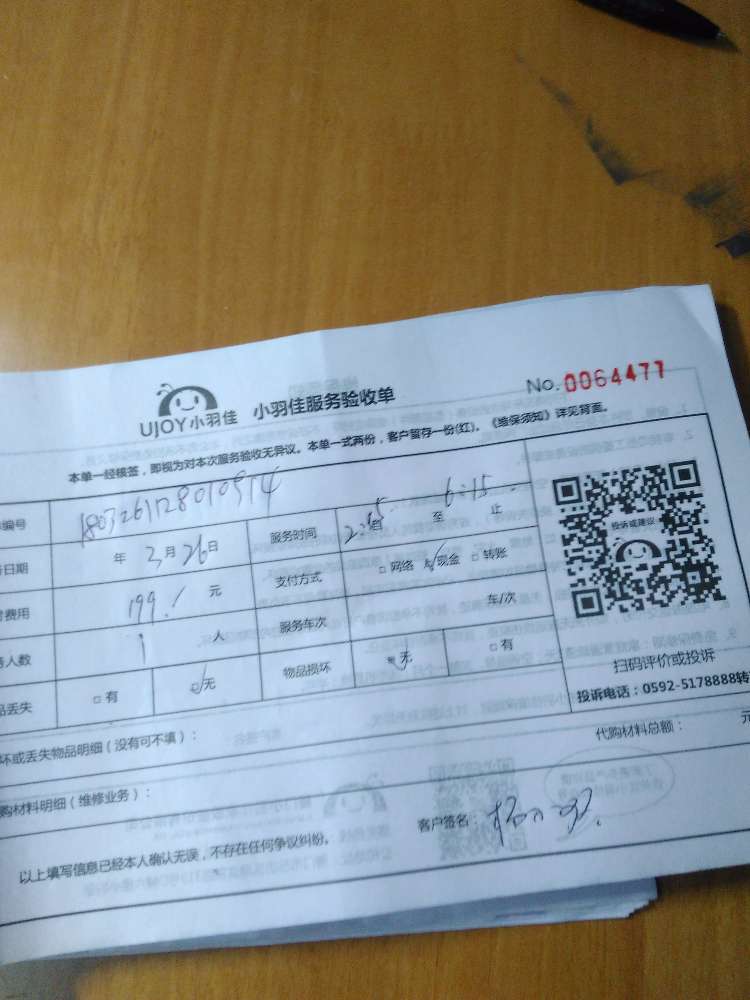 UJOY小羽佳 小羽佳服务验收单 No.0064477
本单一经核签，即视为对本次服务验收无异议。本单一式两份，客户留存一份(红)。《维保须知》详见背面。
编号 1803261128010914
日期 年 3月26日 服务时间 至 6:15 止
费用 199 元 支付方式 □网络 □现金 □转账
人数 1 人 服务车次 车/次
品丢失 □有 □无 物品损坏 □无 □有
投诉或建议
扫码评价或投诉
投诉电话：0592-5178888转
坏或丢失物品明细（没有可不填）：
代购材料总额： 元
购材料明细（维修业务）：
以上填写信息已经本人确认无误，不存在任何争议纠纷。 客户签名：